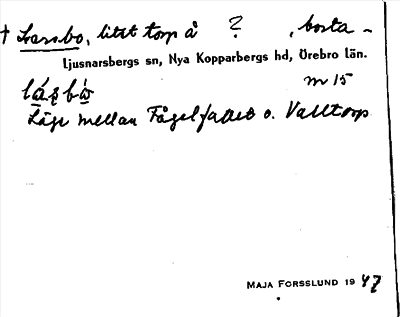 † Larsbo, litet torp å ? , borta -
Ljusnarsbergs sn, Nya Kopparbergs hd, Örebro län.
m 15
Låge mellan Fågelfallet o. Valltorp
MAJA FORSSLUND 1947